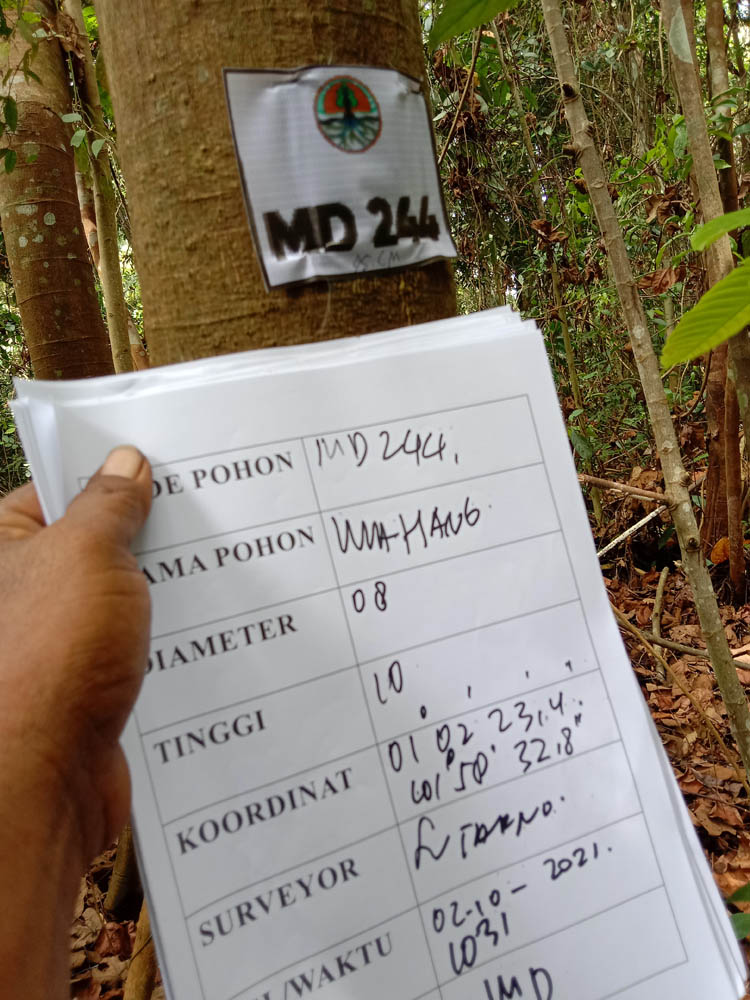 MD 244
DE POHON MD 244.
AMA POHON MAHANG
DIAMETER 08
TINGGI 10
KOORDINAT 01° 02' 23,4"
101° 50' 32,8"
SURVEYOR
/WAKTU 02-10-2021.
1031
MD